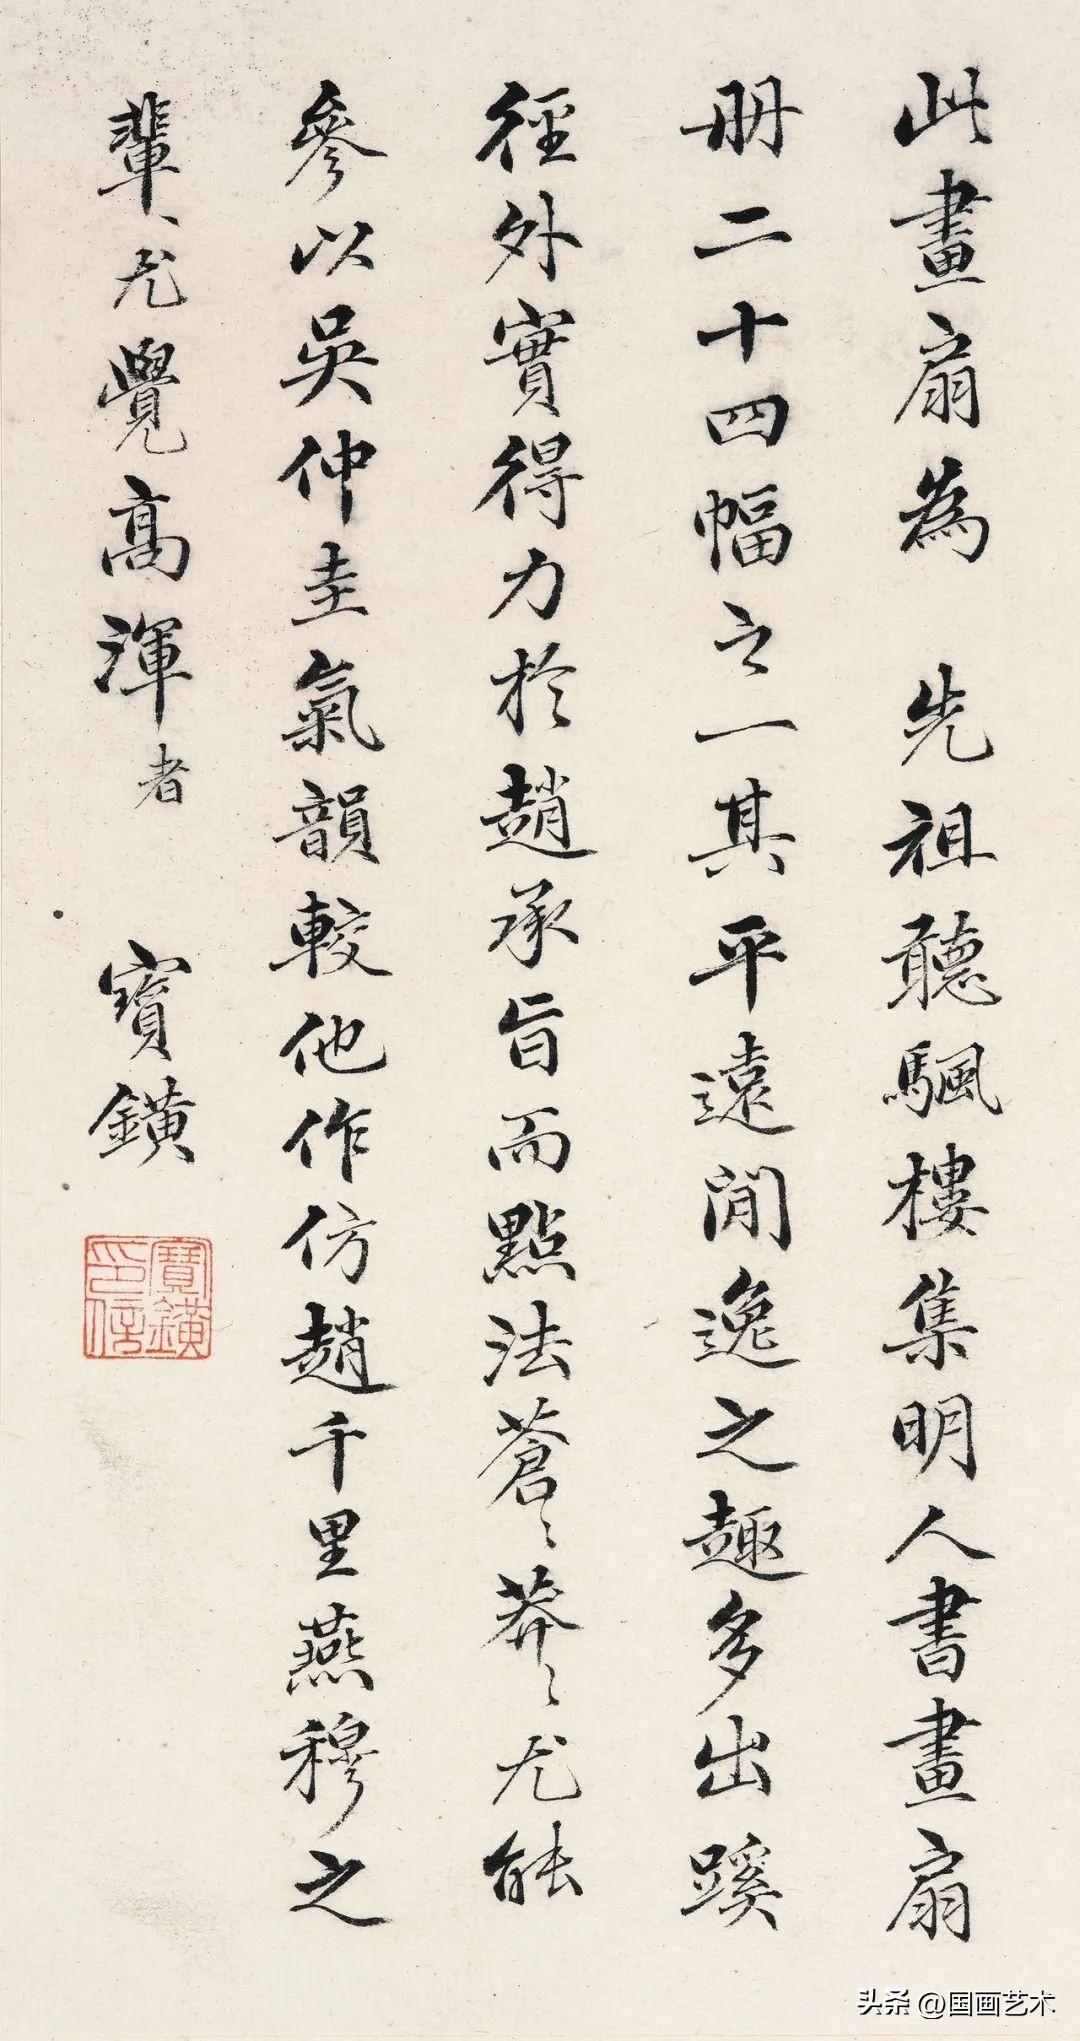 此畫扇為 先祖聽颿樓集明人書畫扇
册二十四幅之一其平遠閒逸之趣多出蹊
徑外實得力於趙承旨而點法蒼〻莽〻尤能
參以吳仲圭氣韻較他作仿趙千里燕穆之
輩尤覺高渾者 寶鐄
寶鐄
印信
头条 @国画艺术